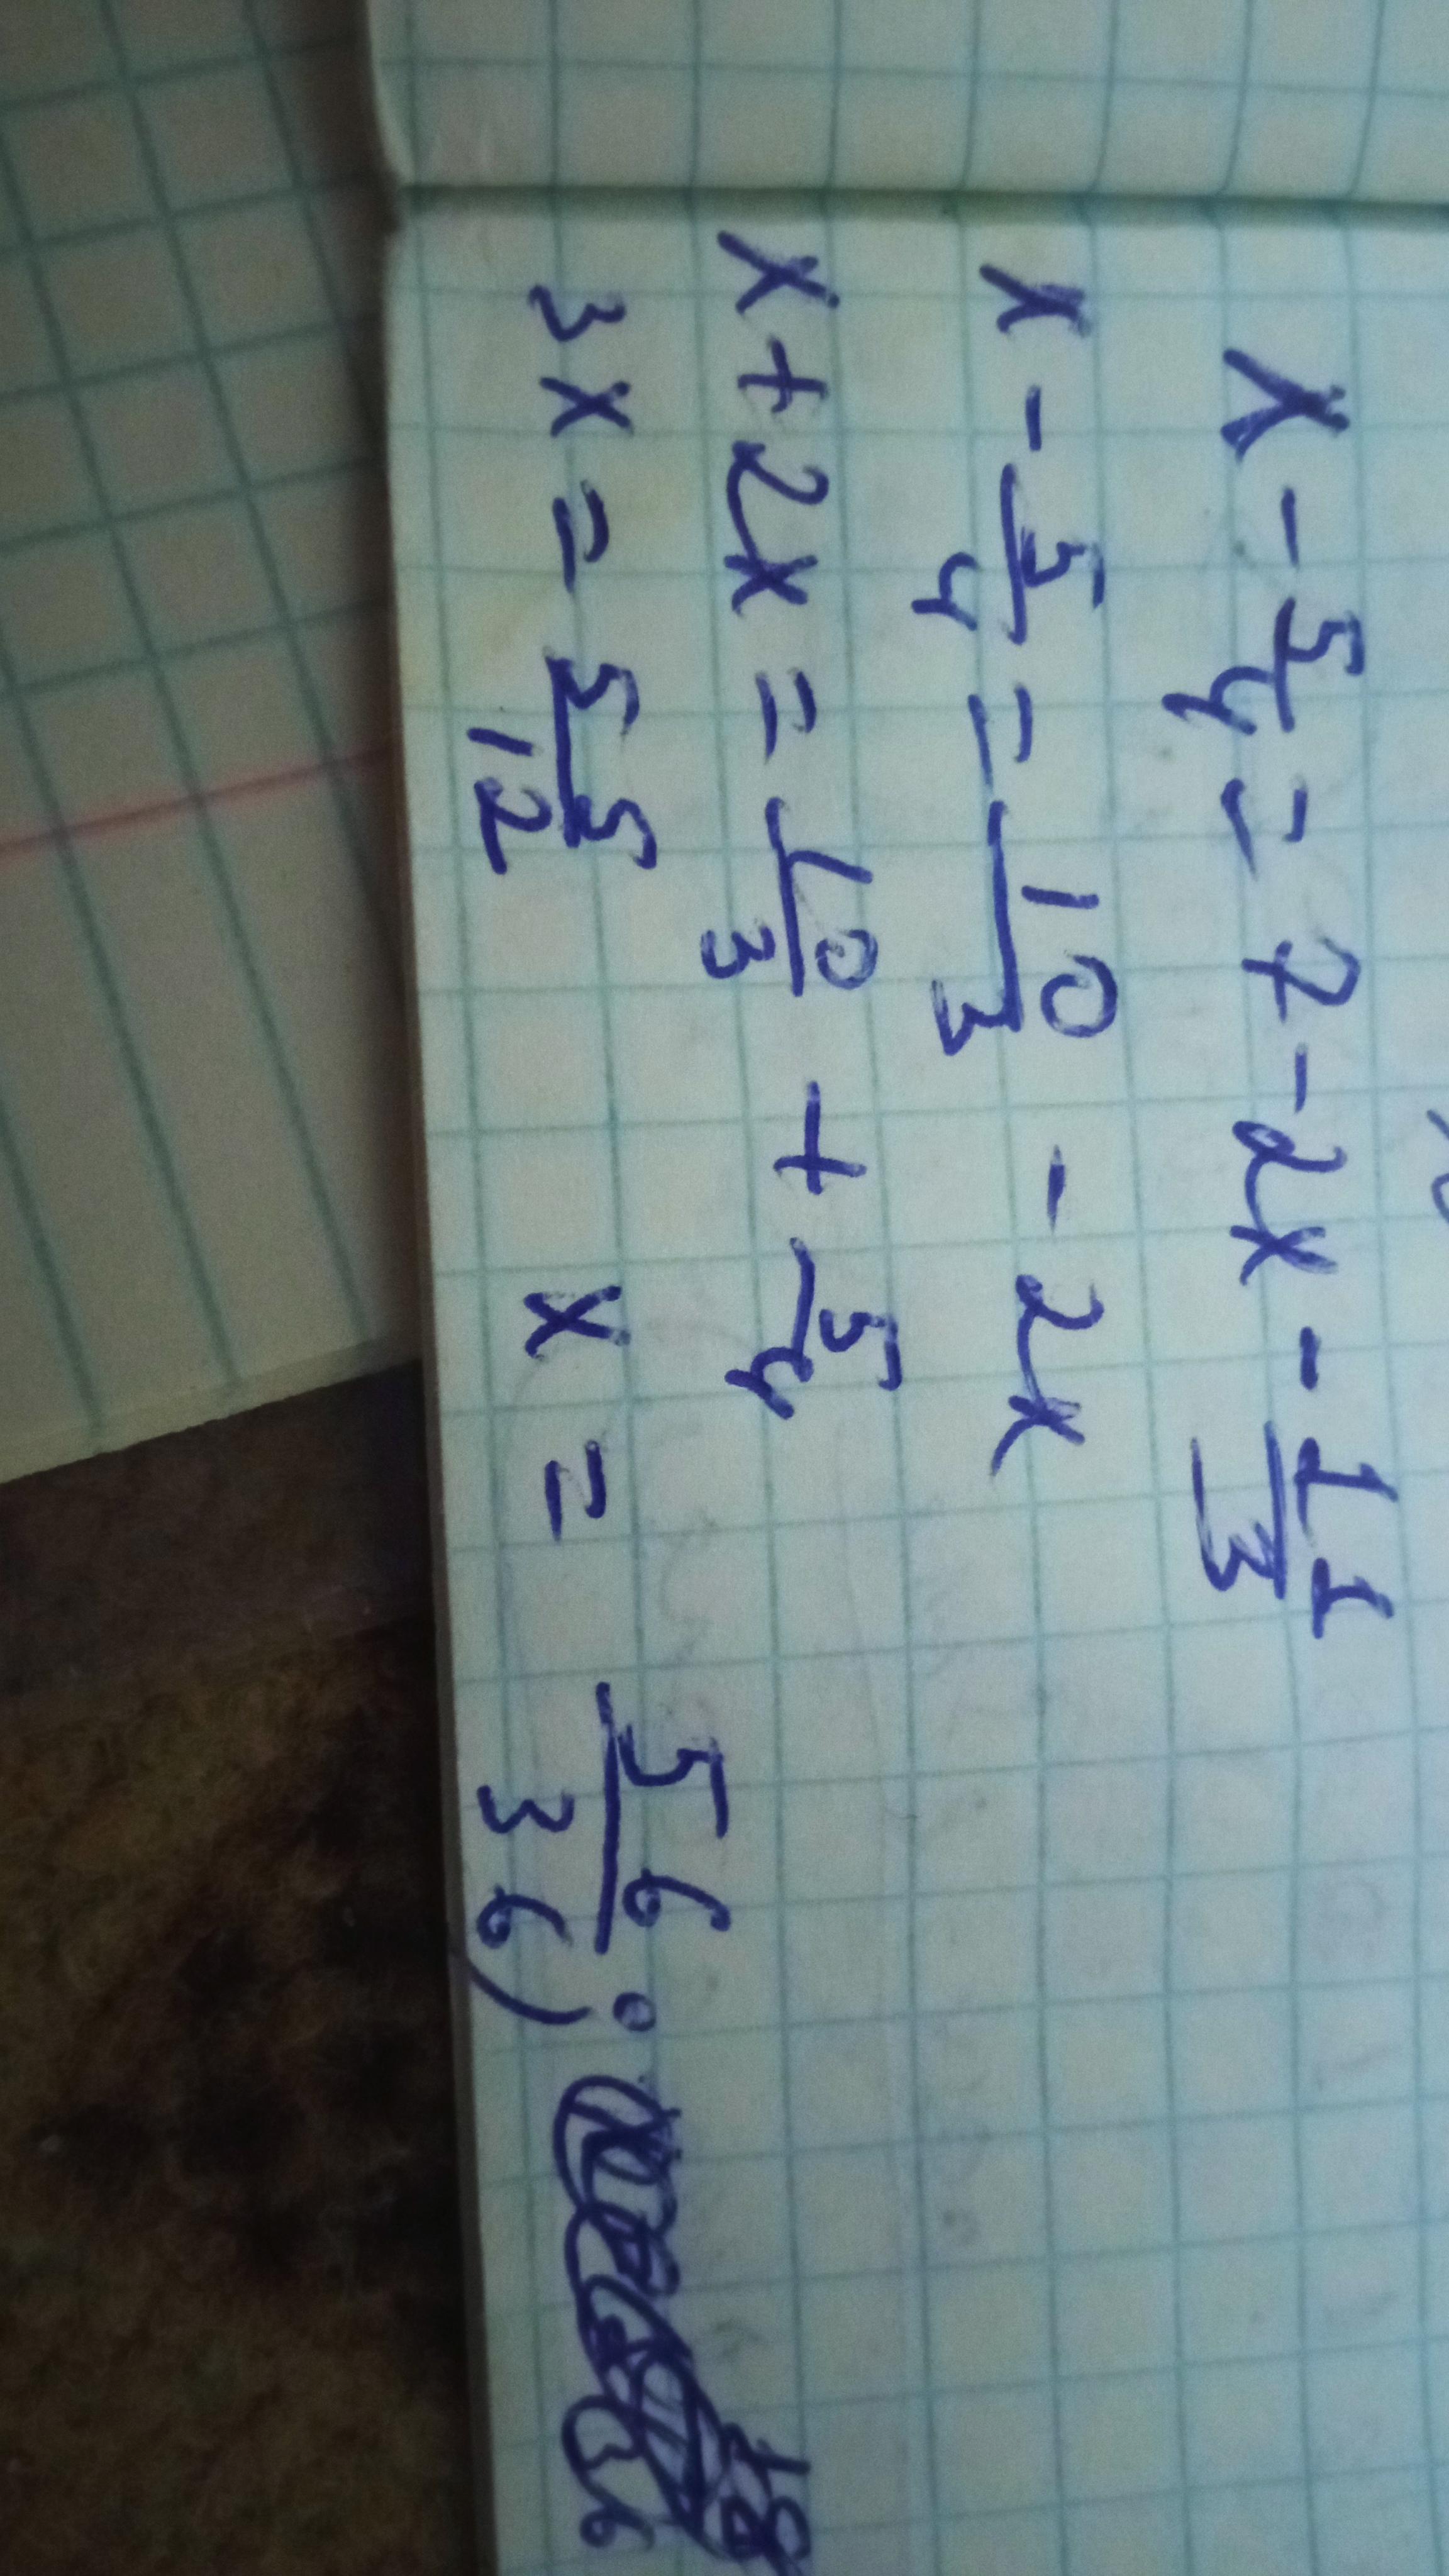 x - 5/4 = 7 - 2x - 11/3
x - 5/4 = 10/3 - 2x
x + 2x = 10/3 + 5/4
3x = 55/12 x = 56/36)°